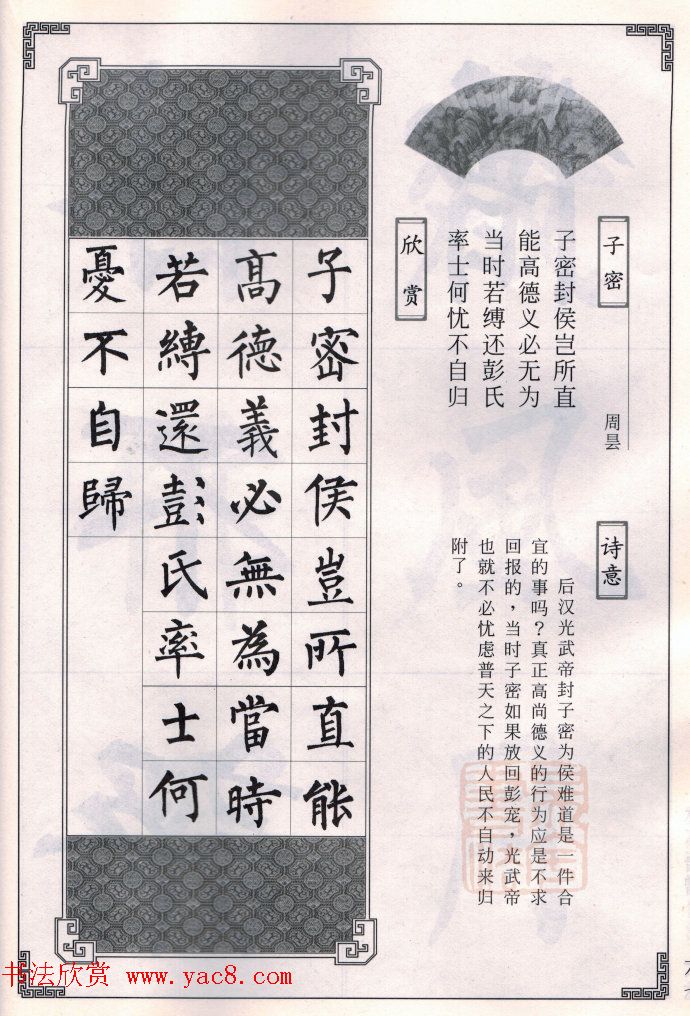 子密
周昙
子密封侯岂所直
能高德义必无为
当时若缚还彭氏
率士何忧不自归
欣赏
诗意
后汉光武帝封子密为侯难道是一件合
宜的事吗？真正高尚德义的行为应是不求
回报的，当时子密如果放回彭宠，光武帝
也就不必忧虑普天之下的人民不自动来归
附了。
子密封侯豈所直能
高德義必無為當時
若縛還彭氏率士何
憂不自歸
书法欣赏 www.yac8.com